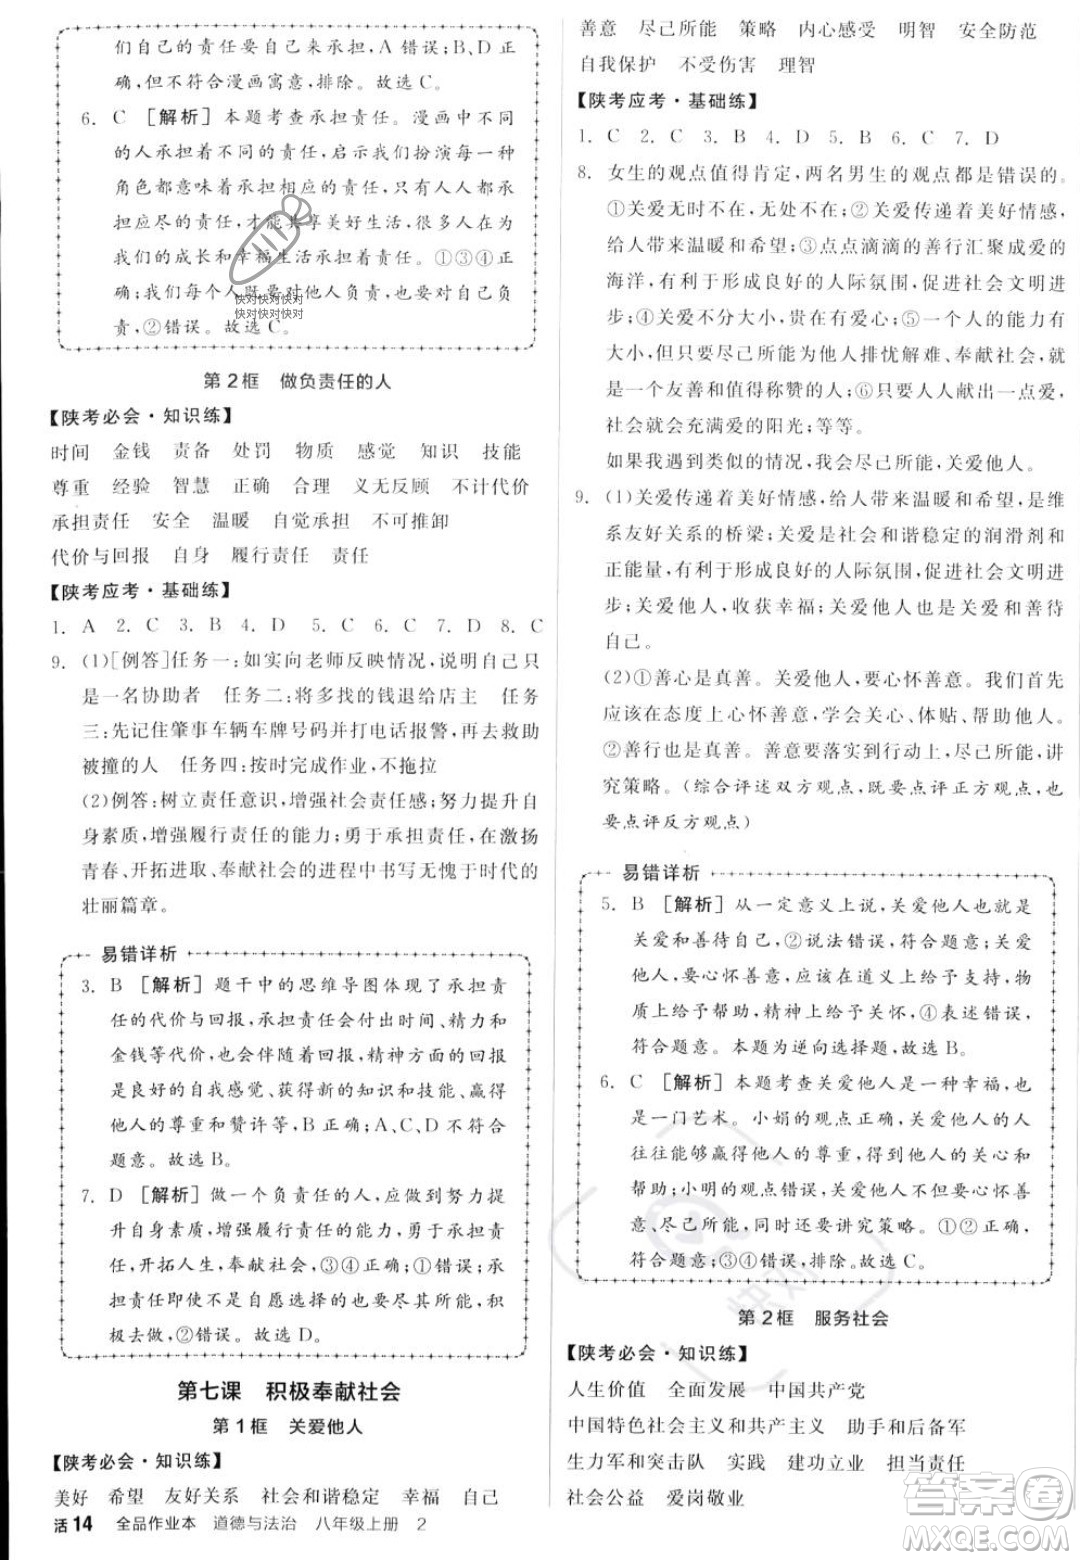 们自己的责任要自己来承担,A错误;B、D正
确,但不符合漫画寓意,排除。故选C。
6. C [解析] 本题考查承担责任。漫画中不同
的人承担着不同的责任,启示我们扮演某种
角色就意味着承担相应的责任,只有人人都
承担应尽的责任,才能共享美好生活,很多人
的成长和幸福生活息息相关。①③④
正确;我们每个人既要对他人负责,也要对自己负
责,②错误。故选C。
快对快对快对
快对快对快对
第2框 做负责任的人
【陕考必会·知识练】
时间 金钱 责备 处罚 物质 感觉 知识 技能
尊重 经验 智慧 正确 合理 义无反顾 不计代价
承担责任 安全 温暖 自觉承担 不可推卸
代价与回报 自身 履行责任 责任
【陕考应考·基础练】
1. A 2. C 3. B 4. D 5. C 6. C 7. D 8. C
9. (1)[例答]任务一:如实向老师反映情况,说明自己只
是一名协助者 任务二:将多找的钱退给店主 任务
三:先记住肇事车辆车牌号码并打电话报警,再去救助
被撞的人 任务四:按时完成作业,不拖拉
(2)例答:树立责任意识,增强社会责任感;努力提升自
身素质,增强履行责任的能力;勇于承担责任,在激扬
青春、开拓进取、奉献社会的进程中书写无愧于时代的
壮丽篇章。
易错详析
3. B [解析] 题干中的思维导图体现了承担责
任的代价与回报,承担责任会付出时间、精力和
金钱等代价,也会伴随着回报,精神方面的回报
是良好的自我感觉、获得新的知识和技能、赢得
他人的尊重和赞许等,B正确;A、C、D不符合
题意。故选B。
7. D [解析] 做一个负责任的人,应努力提
升自身素质,增强履行责任的能力,勇于承担责
任,开拓人生,奉献社会,③④正确;①错误;
承担责任即使不是自愿选择的也要尽其所能,积
极去做,②错误。故选D。
第七课 积极奉献社会
第1框 关爱他人
【陕考必会·知识练】
美好 希望 友好关系 社会和谐稳定 幸福 自己
活14 全品作业本 道德与法治 八年级上册 2
善意 尽己所能 策略 内心感受 明智 安全防范
自我保护 不受伤害 理智
【陕考应考·基础练】
1. C 2. C 3. B 4. D 5. B 6. C 7. D
8. 女生的观点值得肯定,两名男生的观点都是错误的。
①关爱无时不在,无处不在;②关爱传递着美好情感,
给人带来温暖和希望;③点点滴滴的善行汇聚成爱的
海洋,有利于形成良好的人际氛围,促进社会文明进
步;④关爱不分大小,贵在有爱心;⑤一个人的能力有
大小,只要尽己所能为他人排忧解难、奉献社会,就
是一个友善和值得称赞的人;⑥只要人人献出一点爱,
社会就会充满爱的阳光;等等。
如果我遇到类似的情况,我会尽己所能,关爱他人。
9. (1)关爱传递着美好情感,给人带来温暖和希望,是维
系友好关系的桥梁;关爱是社会和谐稳定的润滑剂和
正能量,有利于形成良好的人际氛围,促进社会文明进
步;关爱他人,收获幸福;关爱他人,也是关爱和善待
自己。
(2)①善心是真善。关爱他人,要心怀善意。我们首先
应该在态度上心怀善意,学会关心、体贴、帮助他人。
②善行也是真善。善意要落实到行动上,尽己所能,讲
究策略。(综合评述双方观点,既要点评正方观点,也
要点评反方观点)
易错详析
5. B [解析] 从一定意义上说,关爱他人也就是
关爱和善待自己,②说法错误,符合题意;关爱
他人,要心怀善意,应该在道义上给予支持,物
质上给予帮助,精神上给予关怀,④表述错误,
符合题意。本题为逆向选择题,故选B。
6. C [解析] 本题考查关爱他人是一种幸福,也
是一门艺术。小娟的观点正确,关爱他人的人
往往能够赢得他人的尊重,得到他人的关心和
帮助;小明的观点错误,关爱他人不仅要心怀善
意、尽己所能,同时还要讲究策略。①②正确,
符合题意;③④错误,排除。故选C。
第2框 服务社会
【陕考必会·知识练】
人生价值 全面发展 中国共产党
中国特色社会主义和共产主义 助手和后备军
生力军和突击队 实践 建功立业 担当责任
社会公益 爱岗敬业
快对
答案圈
MXQE.COM